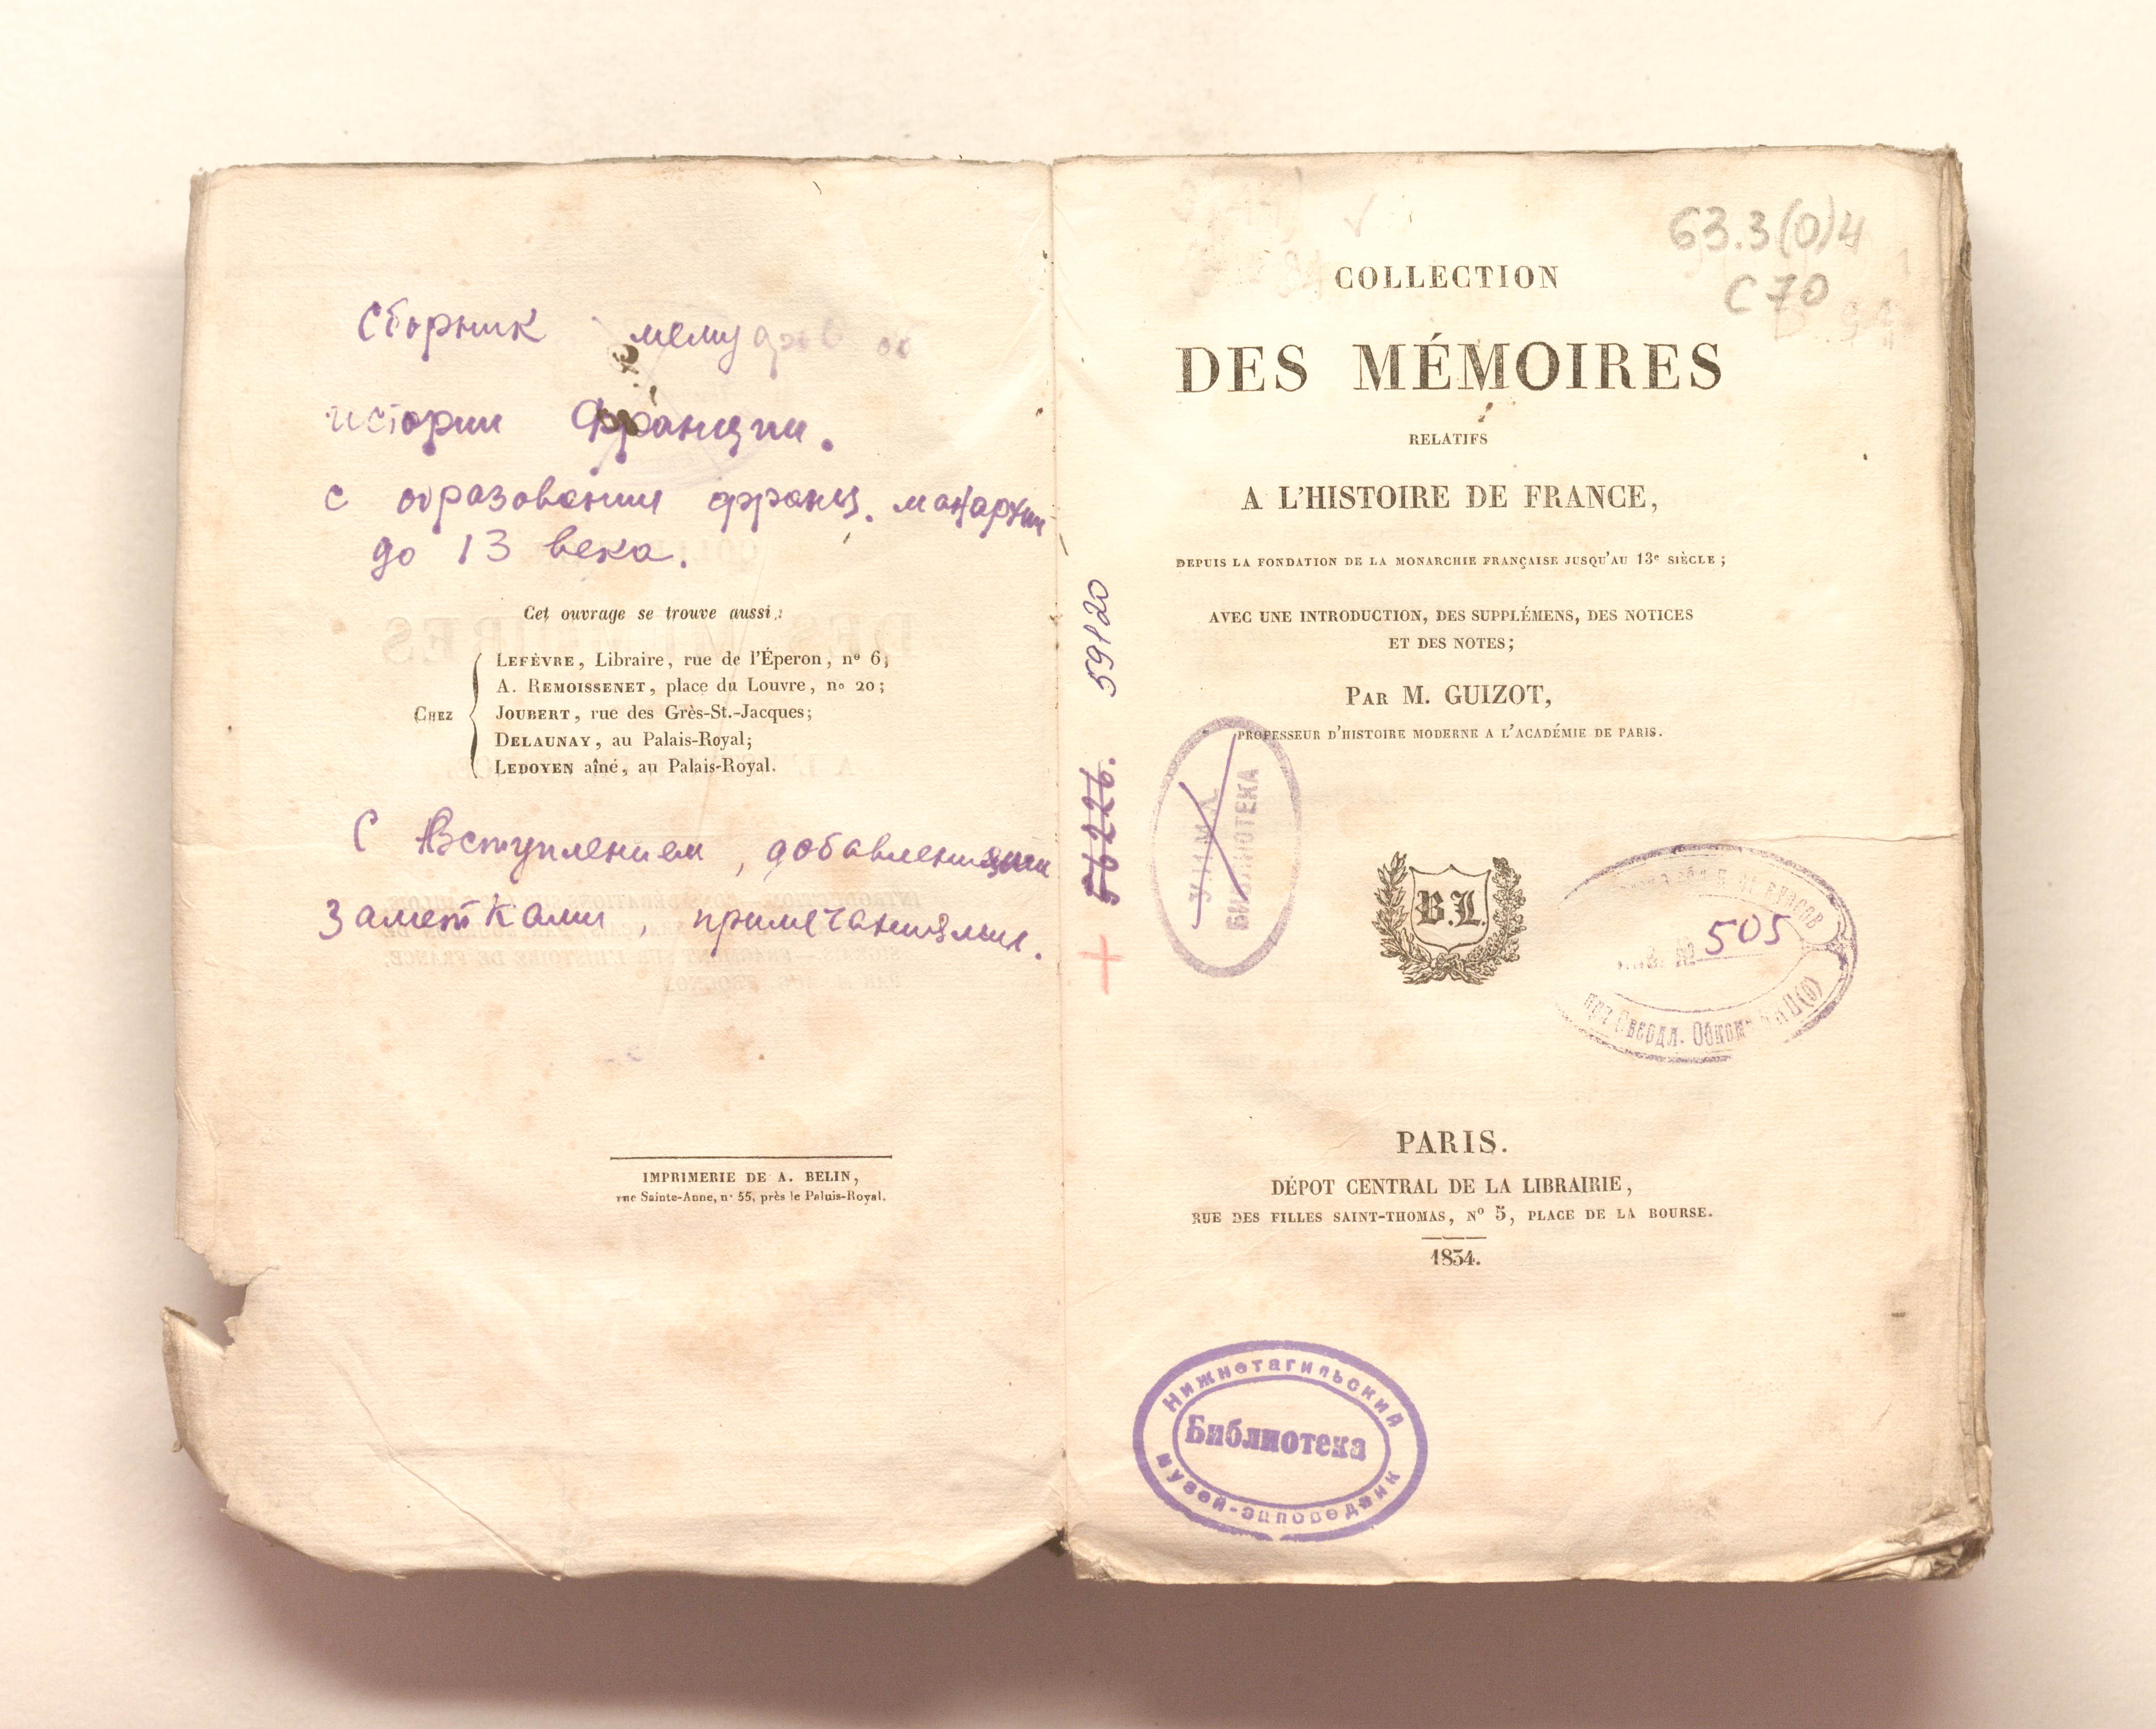 Сборник мемуаров об
истории Франции.
с образования франц. манархии
до 13 века.
Cet ouvrage se trouve aussi :
CHEZ
LEFÈVRE, Libraire, rue de l'Éperon, nº 6;
A. REMOISSENET, place du Louvre, nº 20;
JOUBERT, rue des Grès-St.-Jacques;
DELAUNAY, au Palais-Royal;
LEDOYEN aîné, au Palais-Royal.
С Вступлением, добавлениями
заметками, примечаниями.
IMPRIMERIE DE A. BELIN,
rue Sainte-Anne, nº 55, près le Palais-Royal.
63.3(0)4
С 70
COLLECTION
DES MÉMOIRES
RELATIFS
A L'HISTOIRE DE FRANCE,
DEPUIS LA FONDATION DE LA MONARCHIE FRANÇAISE JUSQU'AU 13e SIÈCLE ;
AVEC UNE INTRODUCTION, DES SUPPLÉMENS, DES NOTICES
ET DES NOTES ;
PAR M. GUIZOT,
PROFESSEUR D'HISTOIRE MODERNE A L'ACADÉMIE DE PARIS.
59120
56226.
БИБЛИОТЕКА
B.L.
505
при Свердл. Обкоме
PARIS.
DÉPOT CENTRAL DE LA LIBRAIRIE,
RUE DES FILLES SAINT-THOMAS, Nº 5, PLACE DE LA BOURSE.
1834.
Нижнетагильский
Библиотека
музей-заповедник